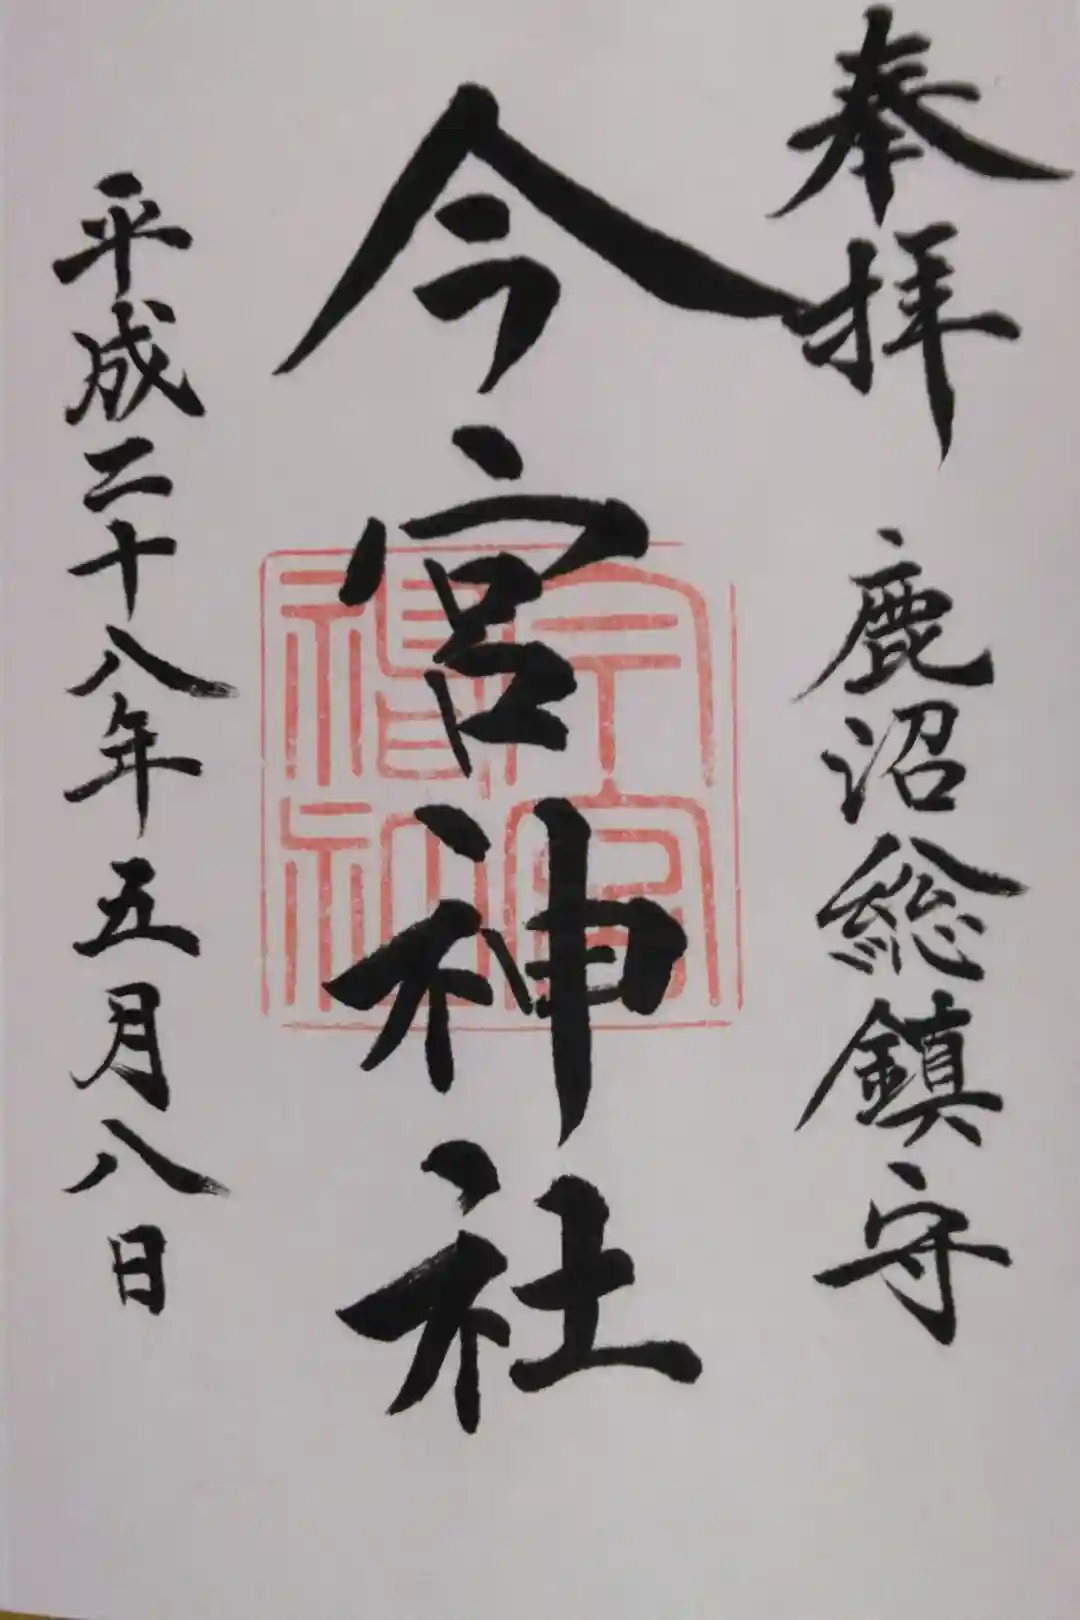 奉拝
鹿沼総鎮守
今宮神社
今宮神社
平成二十八年五月八日